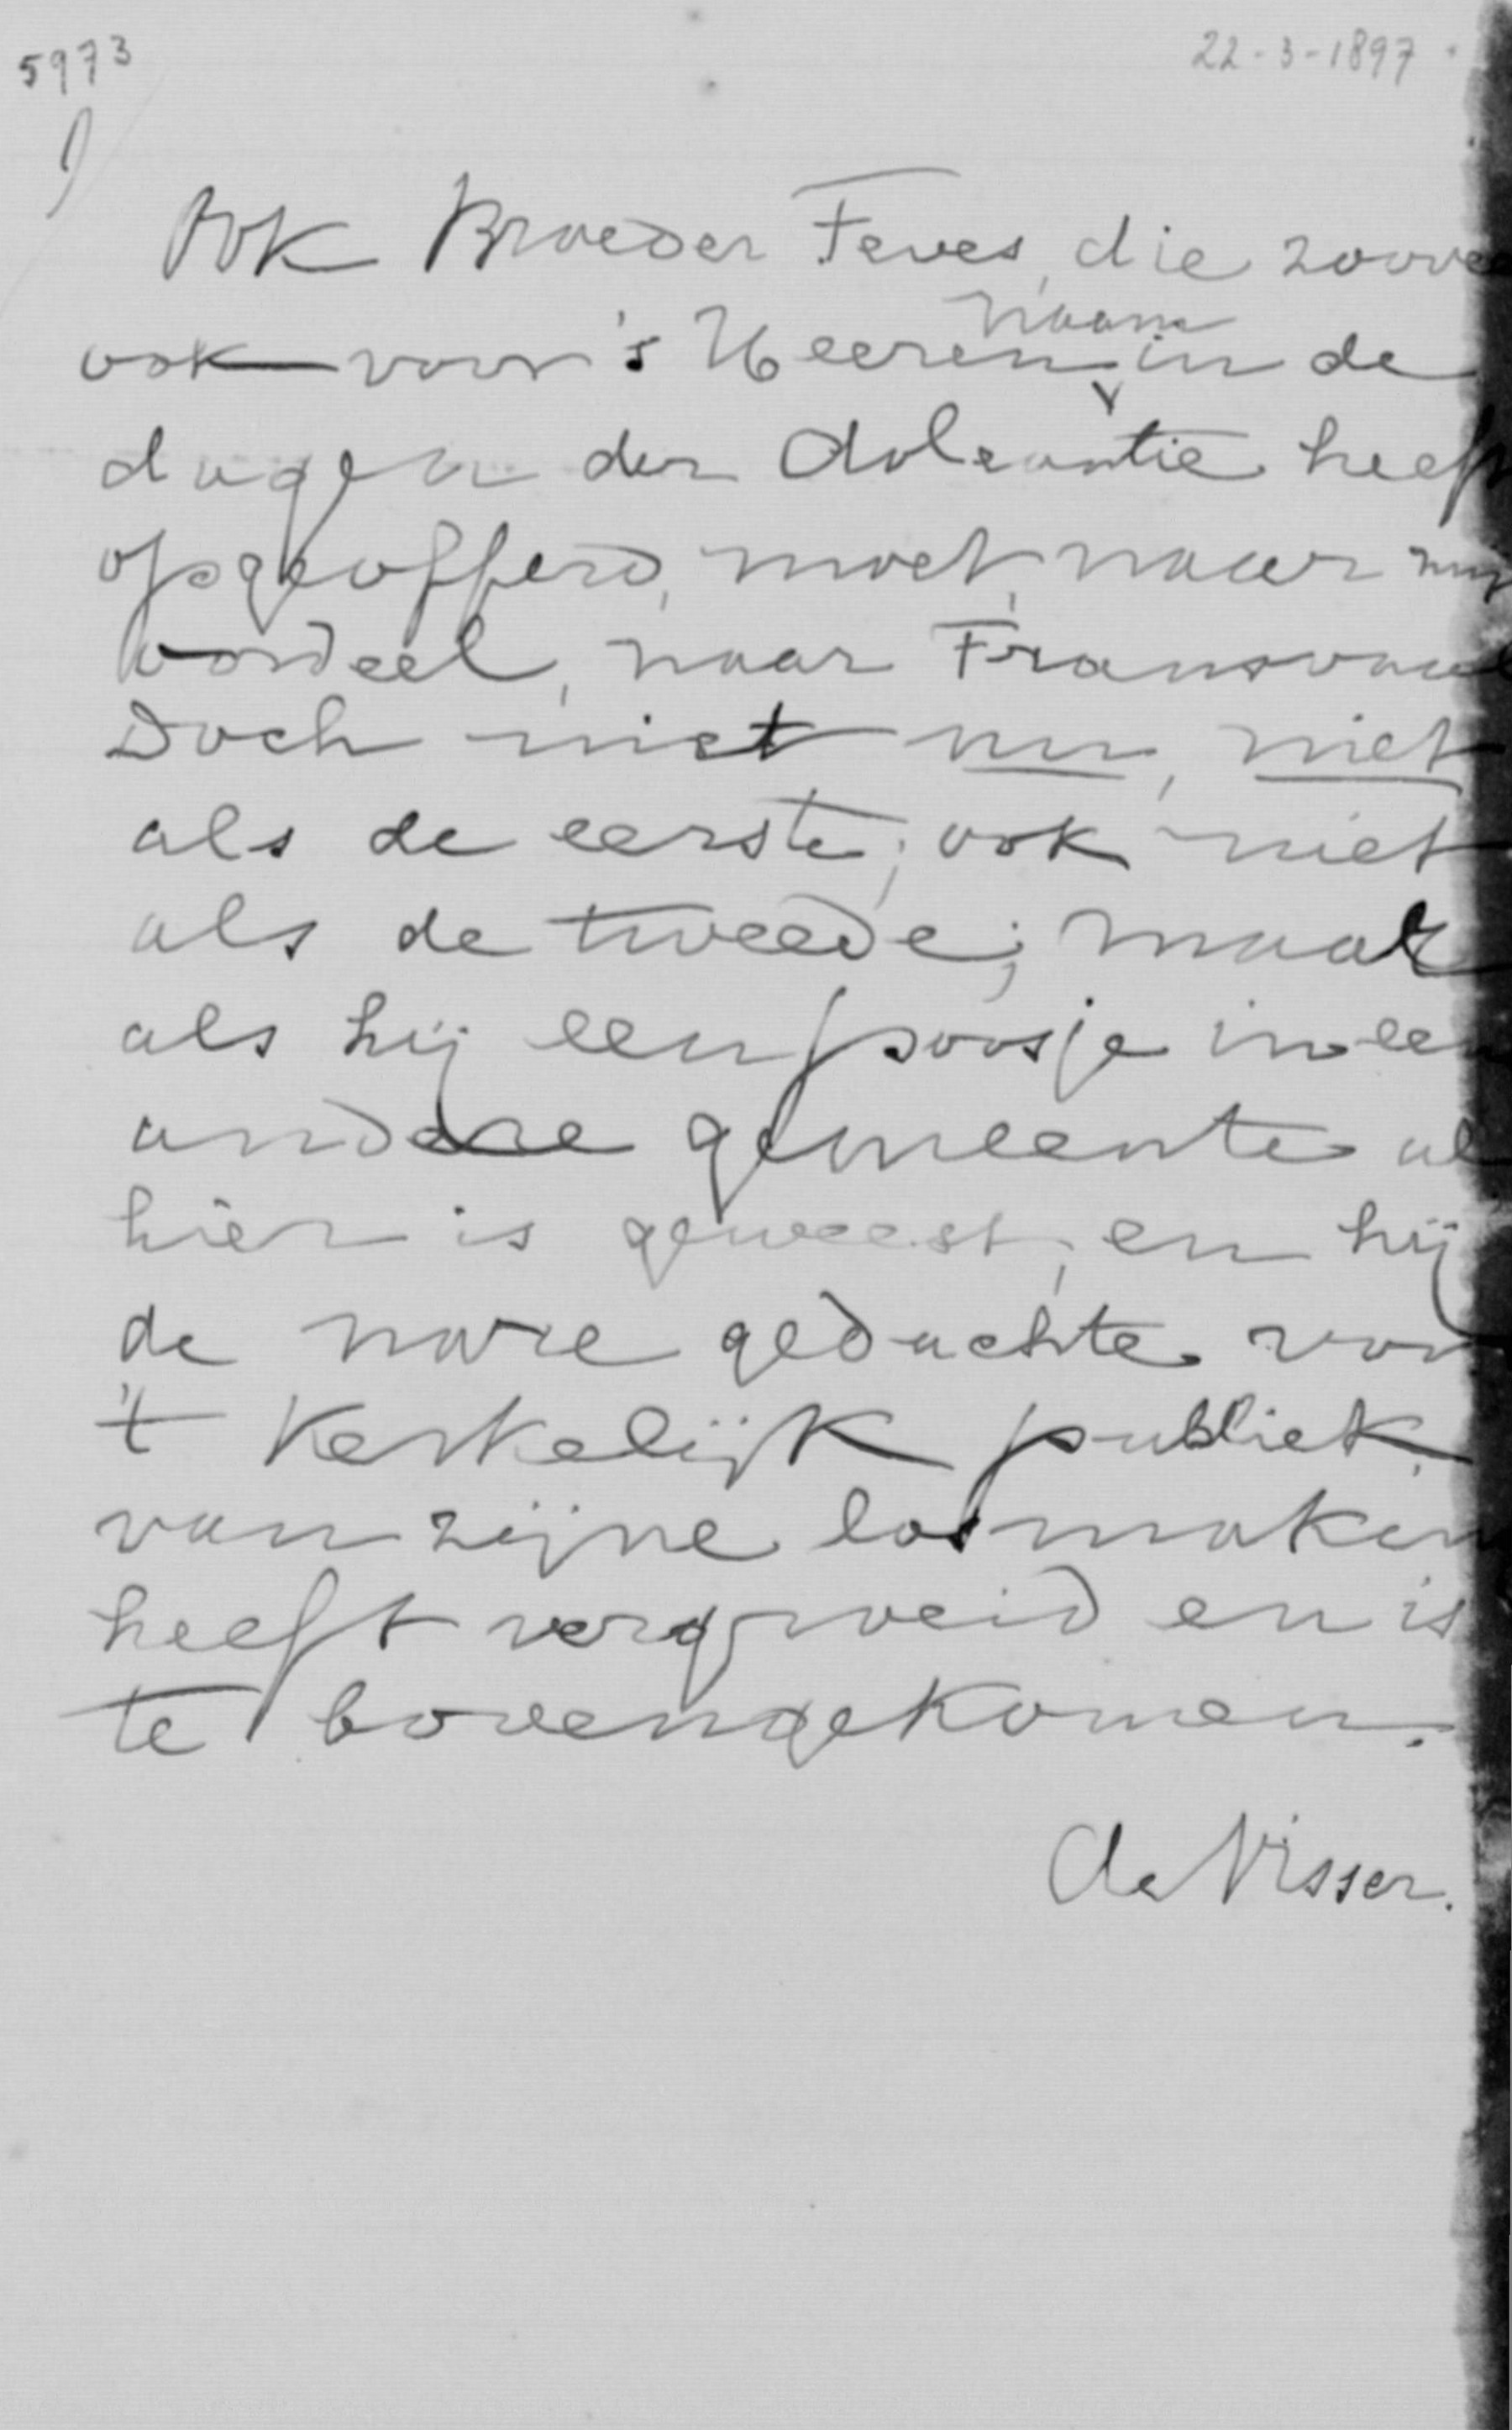 5973
22-3-1897
Ook Broeder Feves, die zoovee
ook voor 's Heeren naam in de
dagen der doleantie heeft
opgeofferd, moet, naar mijn
oordeel, naar Transvaal
Doch niet nu, niet
als de eerste; ook niet
als de tweede; maar
als hij een poosje in een
andere gemeente al
hier is geweest, en hij
de nare gedachte van
't Kerkelijk publiek
van zijne losmaken
heeft vergroeid en is
te bovengekomen.
de Visser.